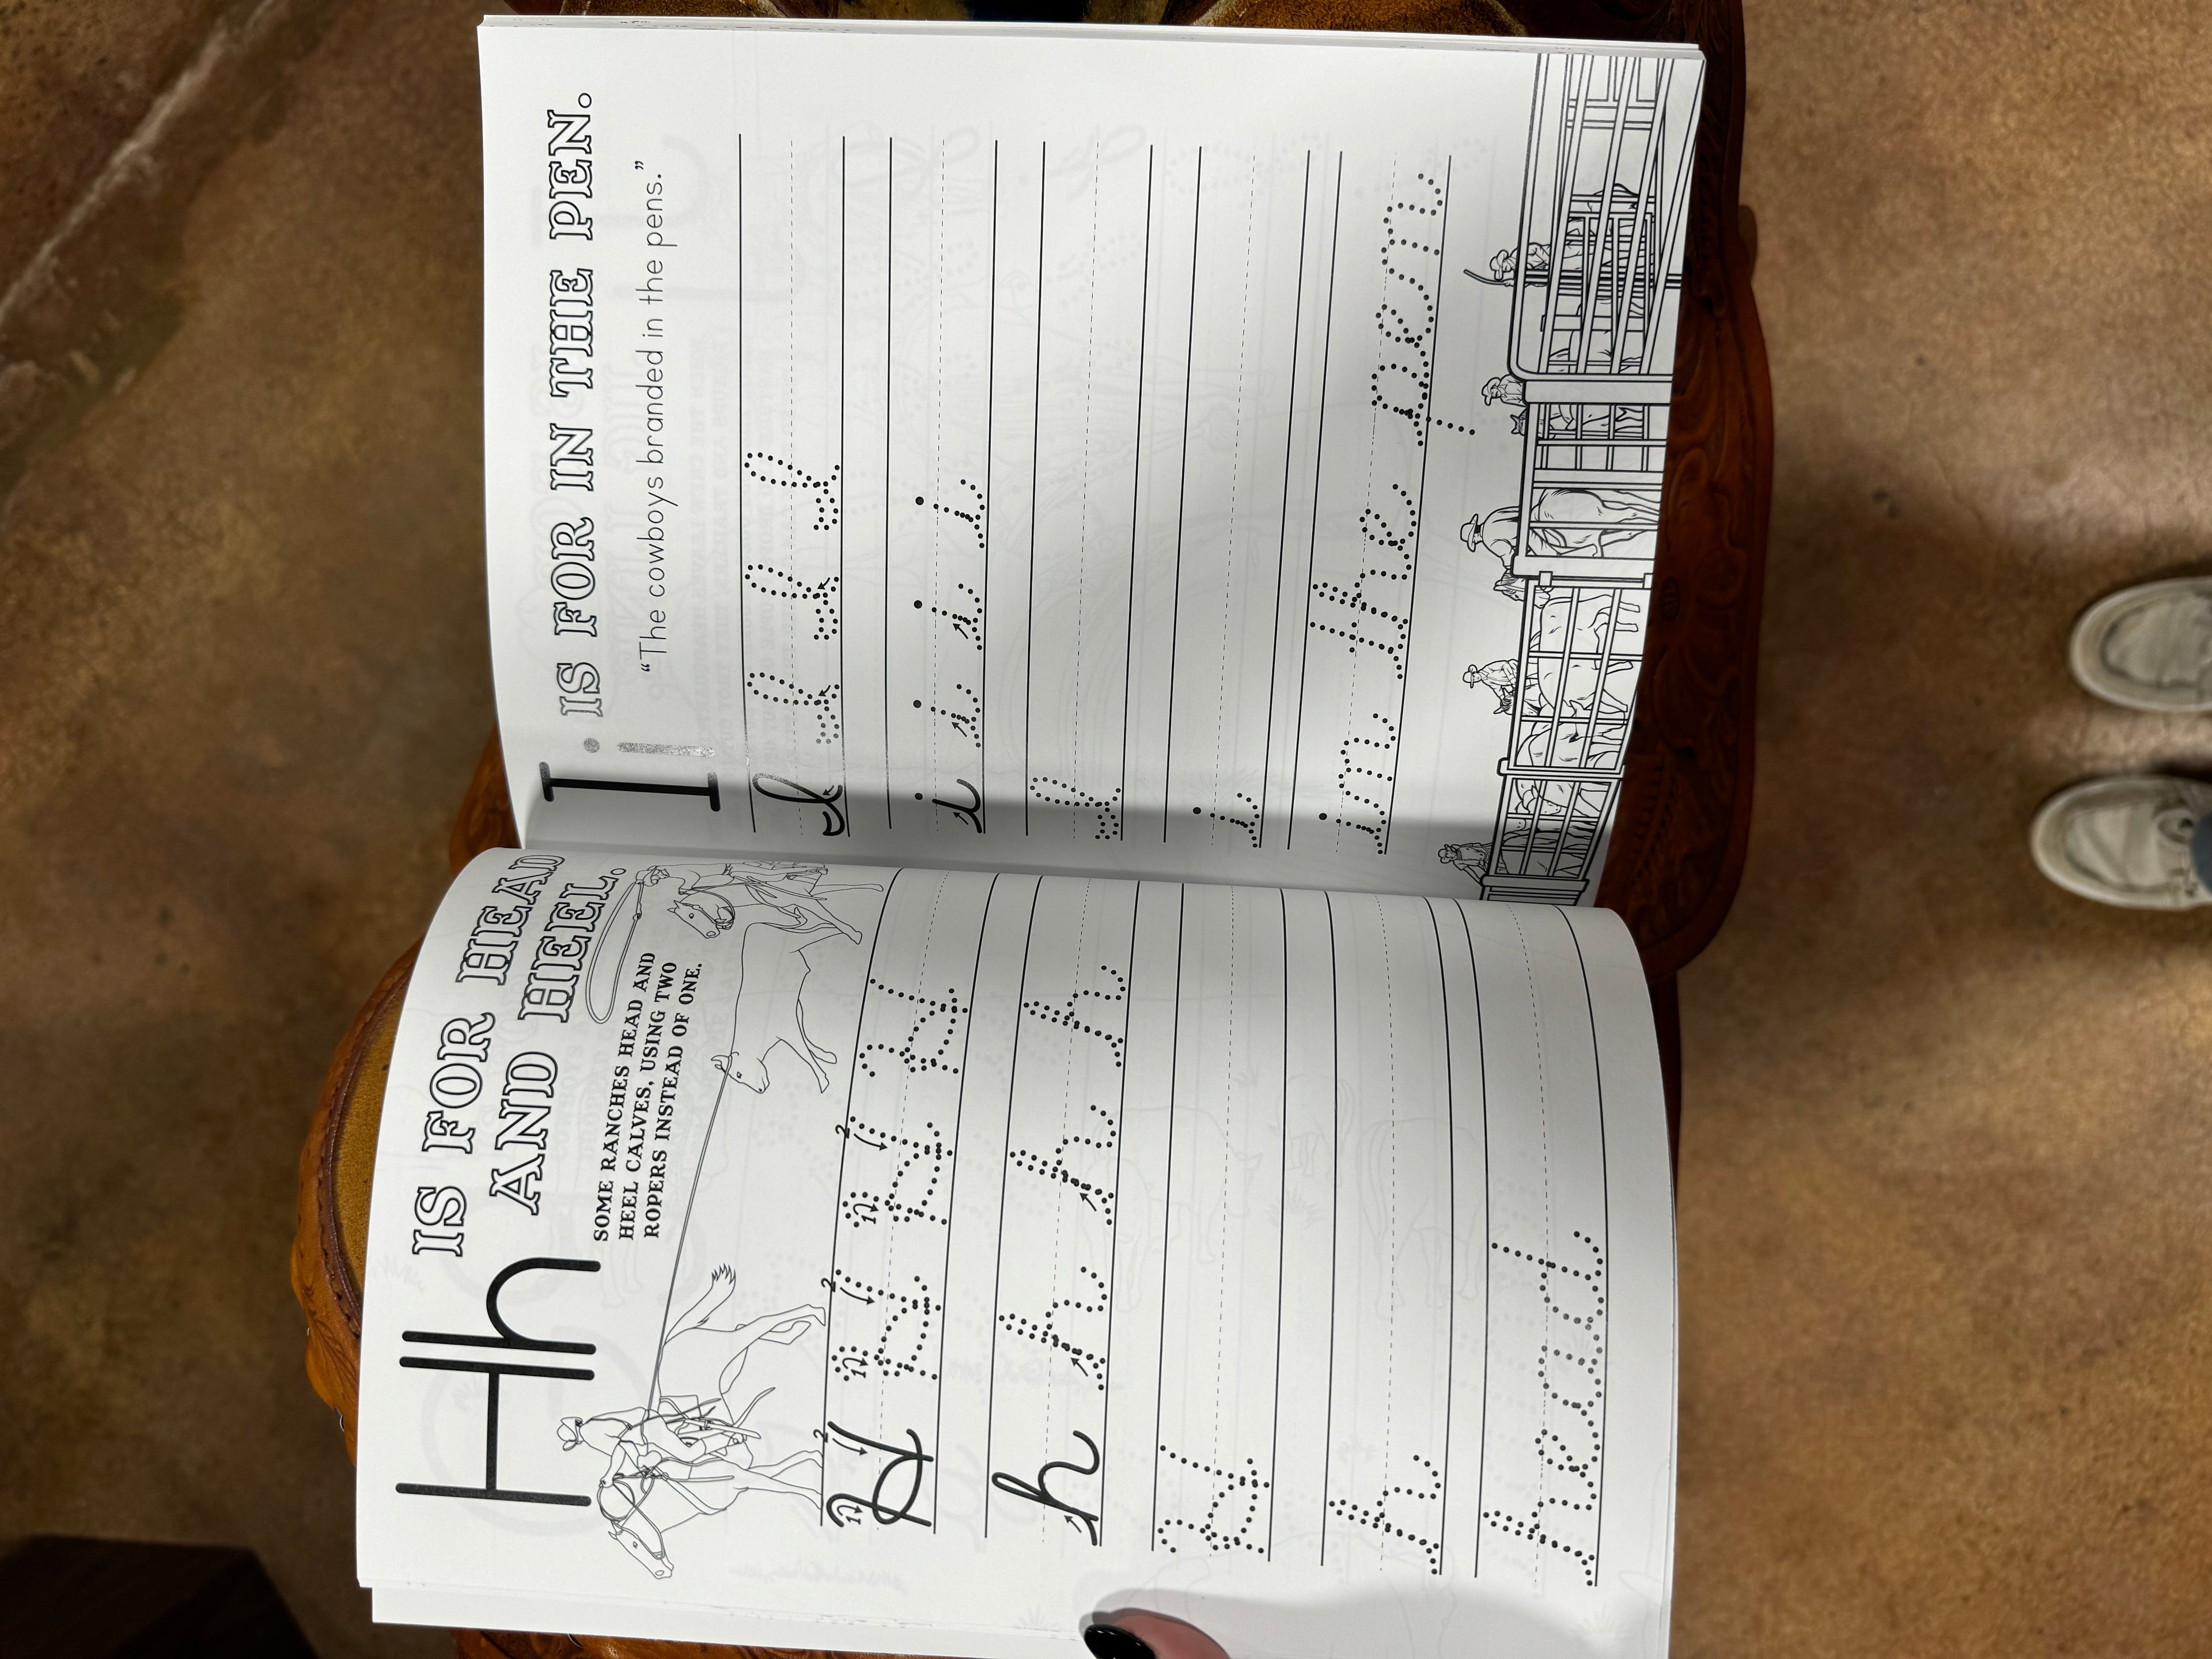 Hh IS FOR HEAD
AND HEEL.
SOME RANCHES HEAD AND
HEEL CALVES, USING TWO
ROPERS INSTEAD OF ONE.
H H H H
h h h h
H
h
head
Ii IS FOR IN THE PEN.
“The cowboys branded in the pens.”
I I I I
i i i i
I
i
in the pen